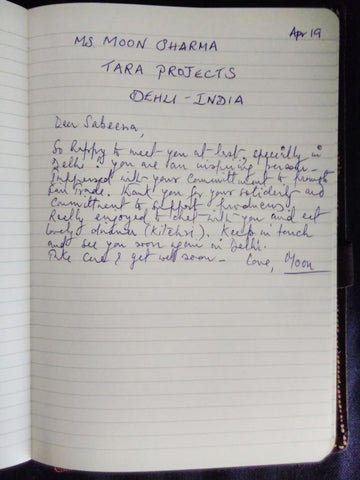 Apr 19
MS. MOON SHARMA
TARA PROJECTS
DEHLI - INDIA
Dear Sabeena,
So happy to meet you at last, specially in
Delhi. you are an inspiring person -
Impressed with your committment to promote
fair trade. Thank you for your solidarity and
Committment to support producers
Really enjoyed to chat with you and eat
lovely dinner (Kitchri). Keep in touch
and see you soon again in Delhi.
Take Care & get well soon - Love, Moon